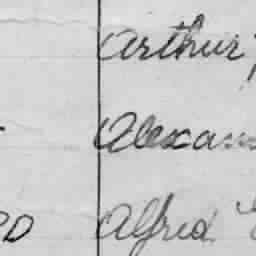 Arthur
Alexan
Alfred